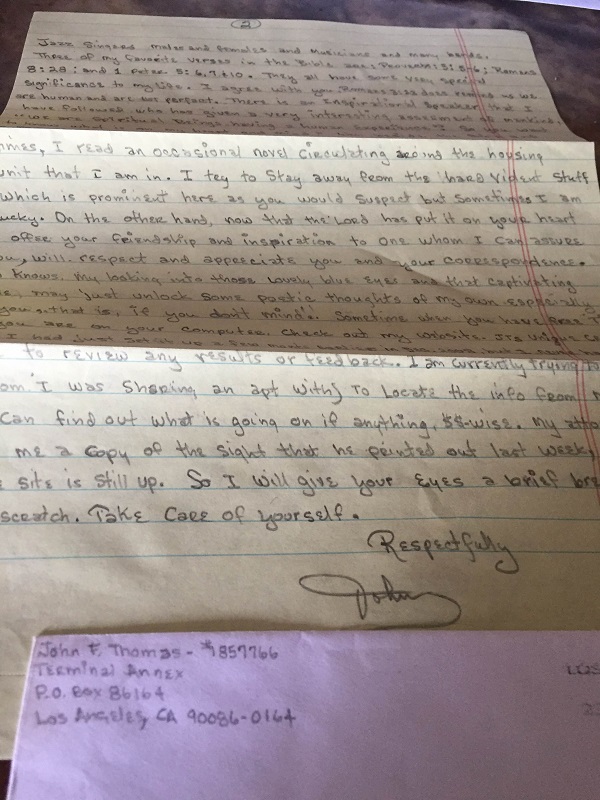 (2)
Jazz Singers males and females and Musicians and many bands.
Three of my favorite verses in the Bible are: Proverbs: 3: 5+6; Romans
8:28; and 1 Peter 5: 6,7+10. They all have some very special
significance to my life. I agree with you Romans 3:23 does remind us we
are human and are not perfect. There is an Inspirational Speaker that I
have followed who has given a very interesting assessment of mankind.
"We are Spiritual Beings having a human experience".
times, I read an occasional novel circulating around the housing
unit that I am in. I try to stay away from the hard violent stuff
which is prominent here as you would suspect but sometimes I am
lucky. On the other hand, now that the Lord has put it on your heart
offer your friendship and inspiration to one whom I can assure
you, will respect and appreciate you and your correspondence.
knows. My looking into those lovely blue eyes and that captivating
may just unlock some poetic thoughts of my own especially
you, that is, if you don't mind. Sometime when you have free
you are on your computer, check out my website. Its unique
I had just
to review any results or feedback. I am currently trying to
om I was sharing an apt with) To Locate the info from
can find out what is going on if anything, $$-wise. My atto
me a copy of the sight that he printed out last week,
site is still up. So I will give your eyes a brief bre
scratch. Take care of yourself.
Respectfully
John
John F. Thomas - #857766
Terminal Annex
P.O. Box 86164
Los Angeles, CA 90086-0164